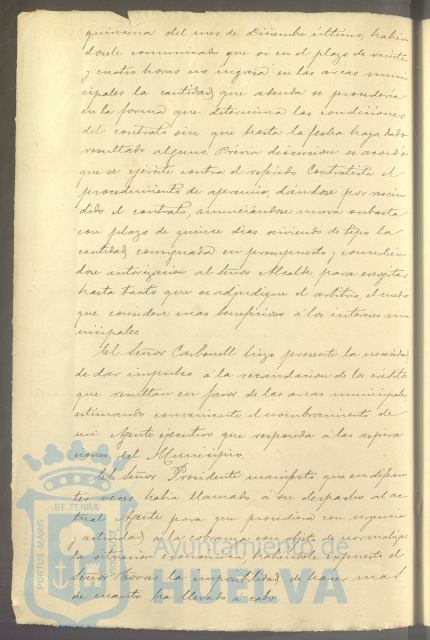 quincena del mes de Diciembre último, habien
dosele comunicado que si en el plazo de veinte
y cuatro horas no ingresa en las arcas muni
cipales la cantidad que adeuda se procederia
en la forma que determina las condiciones
del contrato sin que hasta la fecha haya dado
resultado alguno. Prévia discusion se acordó
que se ejercite contra el referido Contratista el
procedimiento de apremio, dándose por rescin
dido el contrato, anunciándose nueva subasta
con plazo de quince dias sirviendo de tipo la
cantidad consignada en presupuesto y concedien
dose autorizacion al Señor Alcalde para escogitar
hasta tanto que se adjudique el arbitrio, el medio
que considere mas beneficioso á los intereses mu
nicipales.
El Señor Carbonell hizo presente la necesidad
de dar impulso á la recaudacion de los créditos
que resultan en favor de las arcas municipales
estimando conveniente el nombramiento de
un Agente ejecutivo que responda á las aspira
ciones del Municipio.
El Señor Presidente manifestó que en diferen
tes veces habia llamado á su despacho al ac
tual Agente para que procediera con urgencia
y actividad á la cobranza con objeto de normalizar
la situacion económica, habiéndole expuesto el
Señor Torres la imposibilidad de hacer mas
de cuanto ha llevado á cabo.
PORTUS MARIS
ET TERRAE
Ayuntamiento de
HUELVA